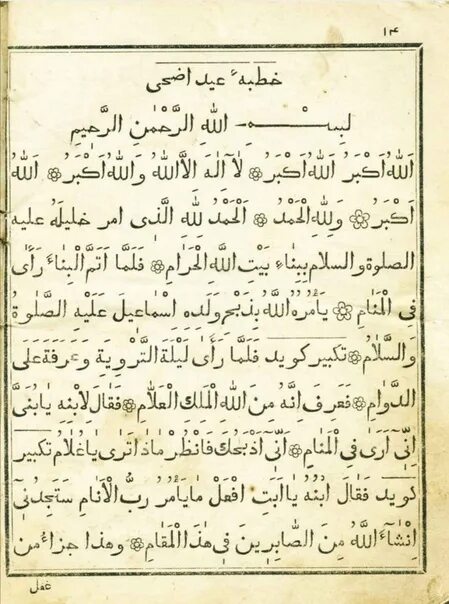 ١٤
خطبهٔ عيد اضحى
بِسْــــمِ اللهِ الرَّحْمٰنِ الرَّحِيمِ
اَللهُ اَكْبَرُ اَللهُ اَكْبَرُ ۞ لَا اِلٰهَ اِلَّا اللهُ وَاللهُ اَكْبَرُ ۞ اَللهُ
اَكْبَرُ ۞ وَلِلّٰهِ الْحَمْدُ ۞ اَلْحَمْدُ لِلّٰهِ الَّذى امر خليلَهُ عليه
الصلوة والسلام بِبِنَاءِ بَيْتِ اللهِ الْحَرَامِ ۞ فَلَمَّا اَتَمَّ الْبِنَاءَ رَأَى
فِى الْمَنَامِ ۞ يَأْمُرُهُ اللهُ بِذَبْحِ وَلَدِهِ اِسْمَاعِيلَ عَلَيْهِ الصَّلٰوةُ
وَالسَّلَامُ ۞ تكبير كويد فَلَمَّا رَأَى لَيْلَةَ التَّرْوِيَةِ وَعَرَفَةَ عَلَى
الدَّوَامِ ۞ فَعَرَفَ اَنَّهُ مِنَ اللهِ الْمَلِكِ الْعَلَّامِ ۞ فَقَالَ لِابْنِهِ يَابُنَىَّ
اِنِّى اَرَى فِى الْمَنَامِ ۞ اَنِّى اَذْبَحُكَ فَانْظُرْ مَاذَا تَرٰى يَا غُلَامُ تكبير
كويد فَقَالَ ابْنُهُ يَا اَبَتِ افْعَلْ مَا يَأْمُرُ رَبُّ الْاَنَامِ سَتَجِدُنِى
اِنْشَآءَ اللهُ مِنَ الصَّابِرِينَ فِى هٰذَا الْمَقَامِ ۞ وهذا جزاءُ من
غفل